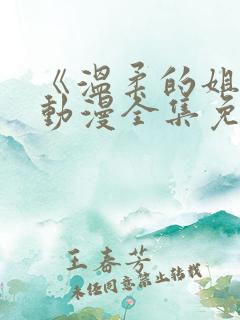 《温柔的姐
動漫全集免
王春芳
未经同意禁止转载